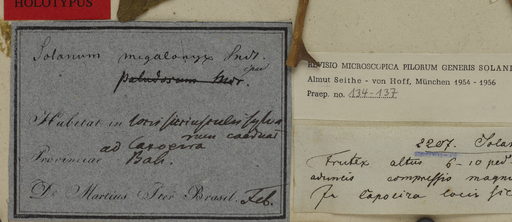 HOLOTYPUS
Solanum megalonyx Sndr.
paludosum Mor.
Habitat in locis
ad Capoeira
Provinciae Bah.
D. Martius Iter Brasil. Feb.
REVISIO MICROSCOPICA PILORUM GENERIS SOLANI
Almut Seithe - von Hoff, München 1954 - 1956
Praep. no. 134-137
2207. Solan
Frutex altus 6-10 ped
aduncis compressis magni
In Capoeira locis sic